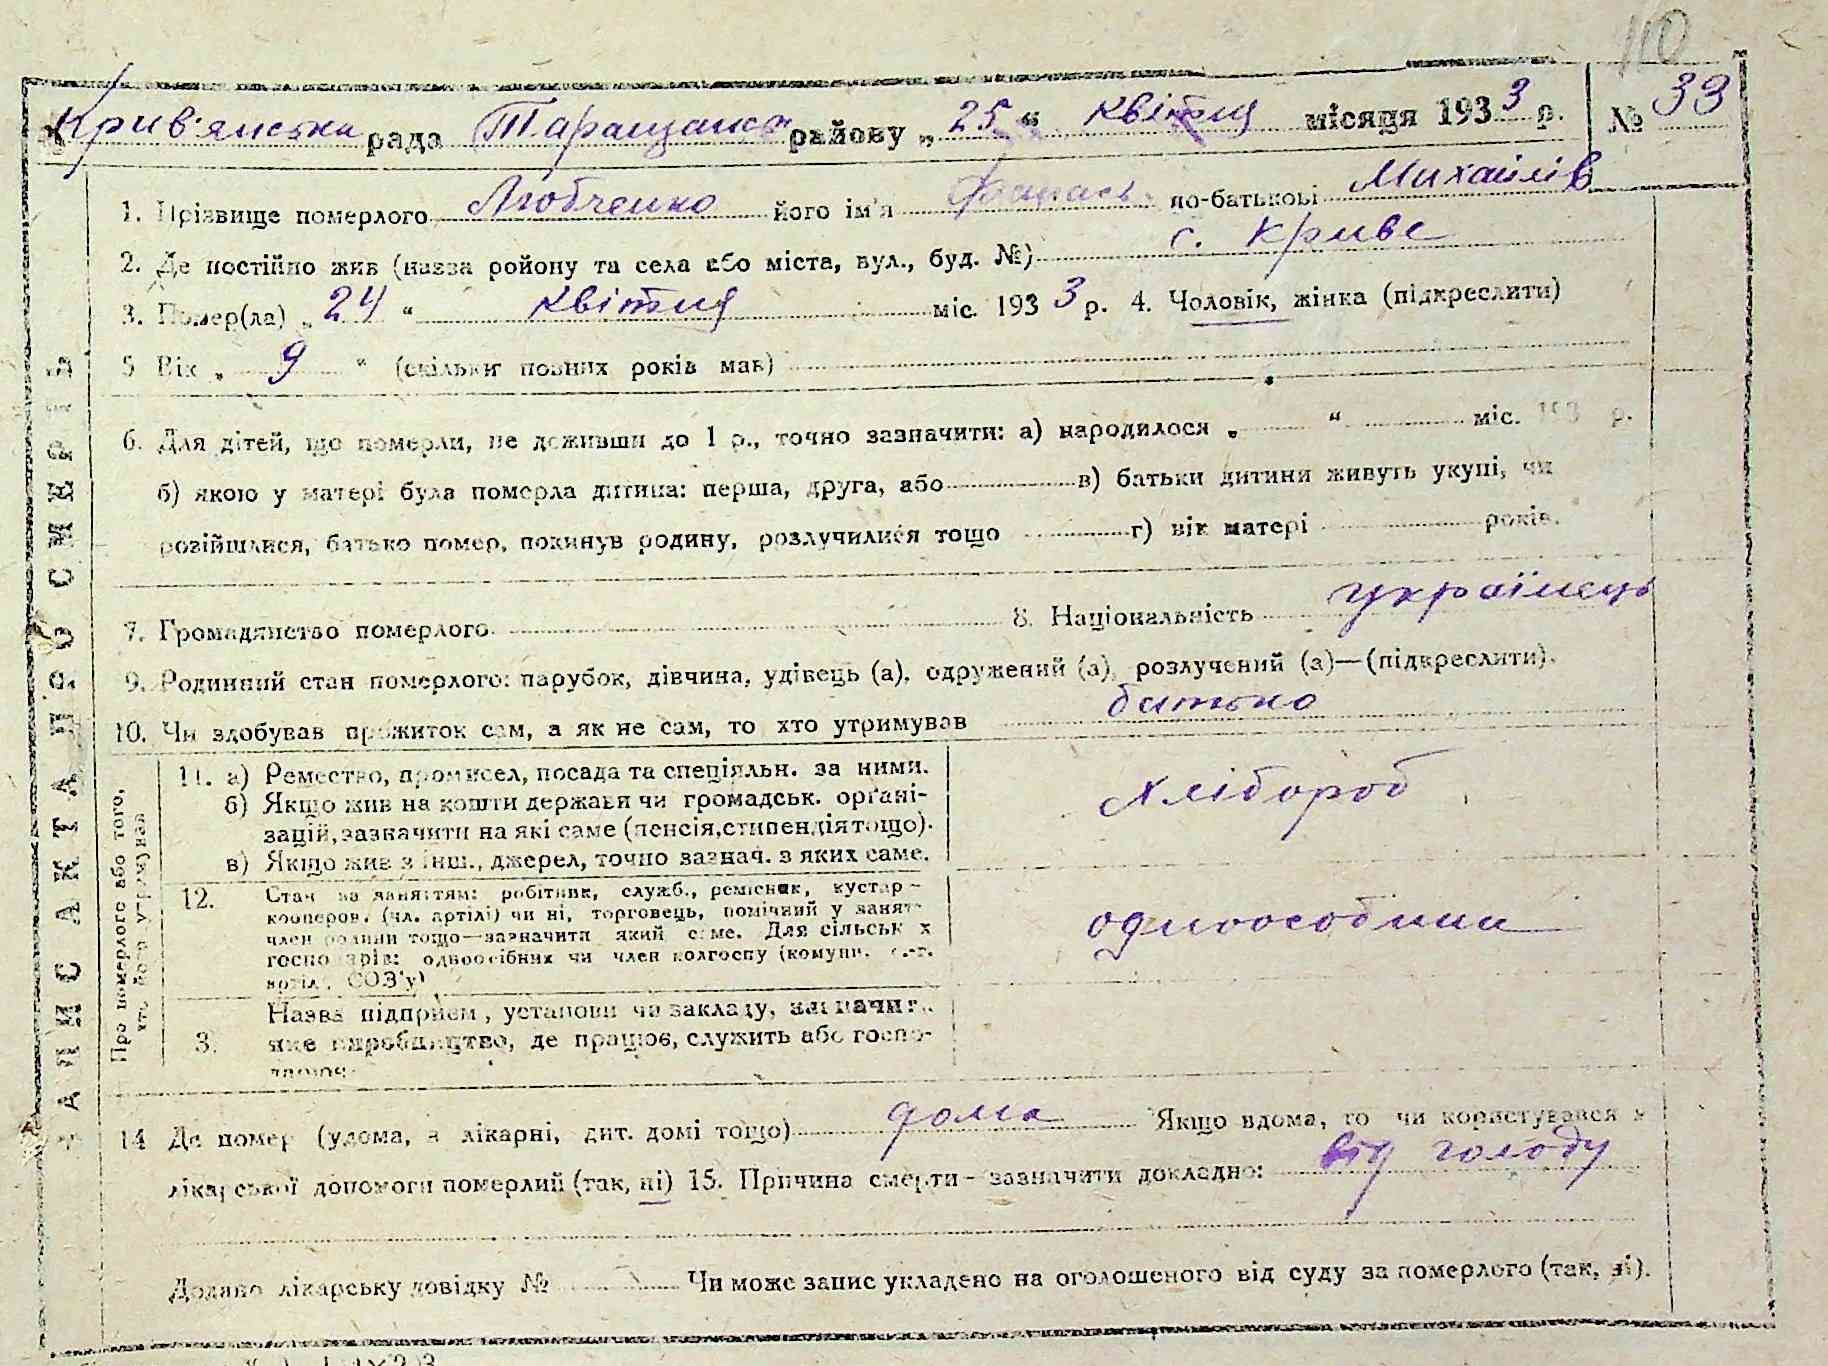 110
Крив'янська рада Таращанськ району „25“ квітня місяця 1933 р. № 33
1. Прізвище померлого Любченко його ім'я Панась по-батькові Михайлів
2. Де постійно жив (назва району та села або міста, вул., буд. №) с. Криве
3. Помер(ла) „24“ квітня міс. 1933 р. 4. Чоловік, жінка (підкреслити)
5 Вік „9“ (скільки повних років мав)
6. Для дітей, що померли, не доживши до 1 р., точно зазначити: а) народилося „ “ міс. 193 р.
б) якою у матері була померла дитина: перша, друга, або в) батьки дитини живуть укупі, чи
розійшлися, батько помер, покинув родину, розлучилися тощо г) вік матері років.
7. Громадянство померлого 8. Національність українець
9. Родинний стан померлого: парубок, дівчина, удівець (а), одружений (а), розлучений (а)—(підкреслити).
10. Чи здобував прожиток сам, а як не сам, то хто утримував батько
ЗАПИС АКТА ПРО СМЕРТЬ
Про померлого або того, хто його утримував
11. а) Ремество, промисел, посада та спеціяльн. за ними.
б) Якщо жив на кошти держави чи громадськ. органі-
зацій, зазначити на які саме (пенсія, стипендія тощо).
в) Якщо жив з інш., джерел, точно зазнач. з яких саме.
хлібороб
12. Стан за заняттям: робітник, служб., ремісник, кустар-
кооперов. (чл. артілі) чи ні, торговець, помічний у занят-
член родини тощо—зазначити який саме. Для сільськ х
господарів: одноосібник чи член колгоспу (комуни, с.-г.
артілі, СОЗ'у)
одноособник
3. Назва підприєм., установи чи закладу, зазначит.
яке виробництво, де працює, служить або госпо-
14 Де помер (удома, в лікарні, дит. домі тощо) дома Якщо вдома, то чи користувався
лікарської допомоги померлий (так, ні) 15. Причина смерти - зазначити докладно: від голоду
Додано лікарську довідку № Чи може запис укладено на оголошеного від суду за померлого (так, ні).